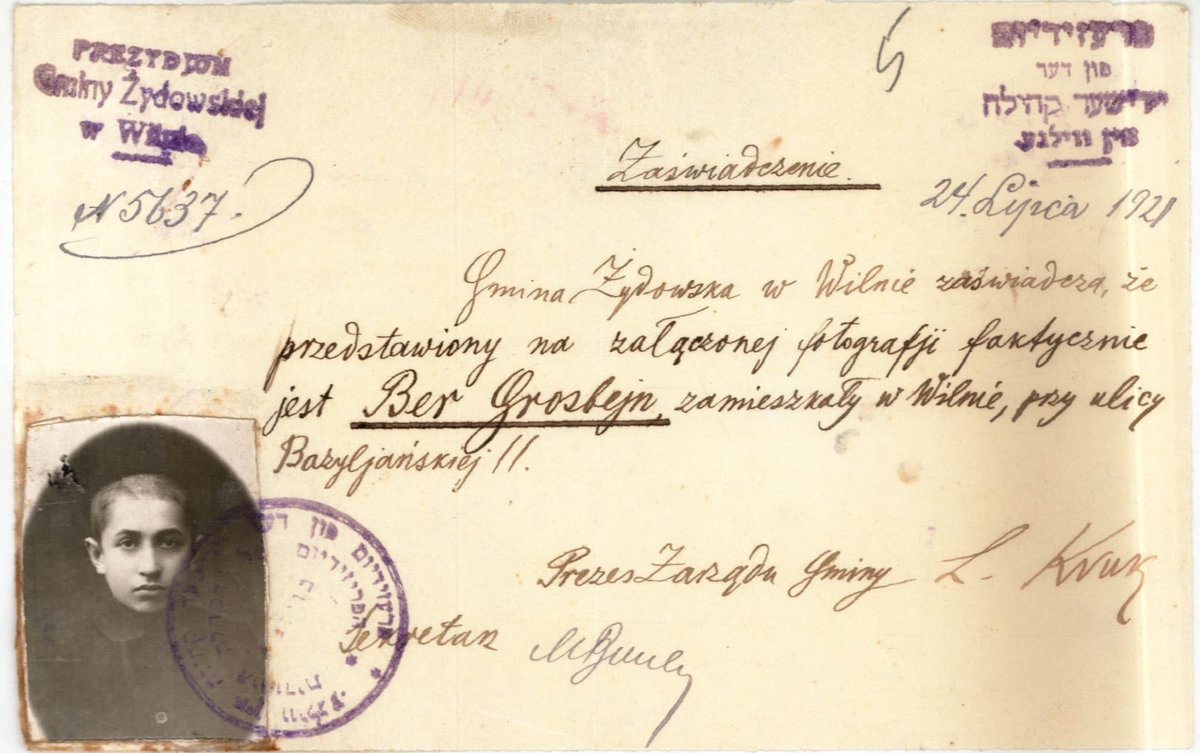 PREZYDJUM
Gminy Żydowskiej
w Wilnie
פרעזידיום
פון דער
יידישער קהילה
אין ווילנע
5
Zaświadczenie.
N 5637.
24. Lipca 1921
Gmina Żydowska w Wilnie zaświadcza, że
przedstawiony na załączonej fotografji faktycznie
jest Ber Grosbejn, zamieszkały w Wilnie, przy ulicy
Bazyljańskiej 11.
Prezes Zarządu Gminy L. Kruk
Sekretarz
פרעזידיום פון דער